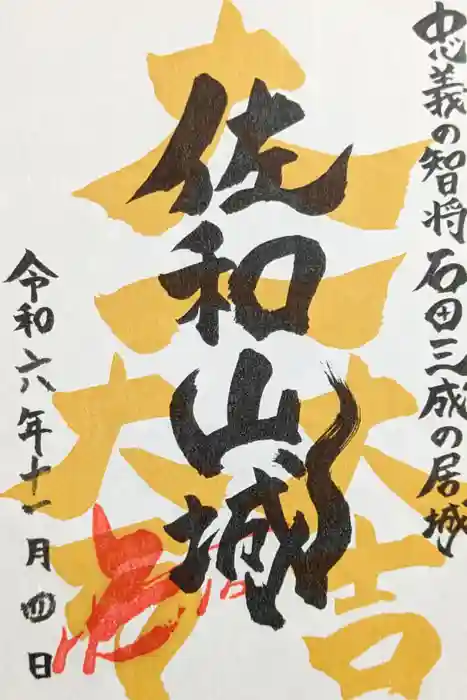 忠義の智将 石田三成の居城
佐和山城
大一大万大吉
令和六年十一月四日